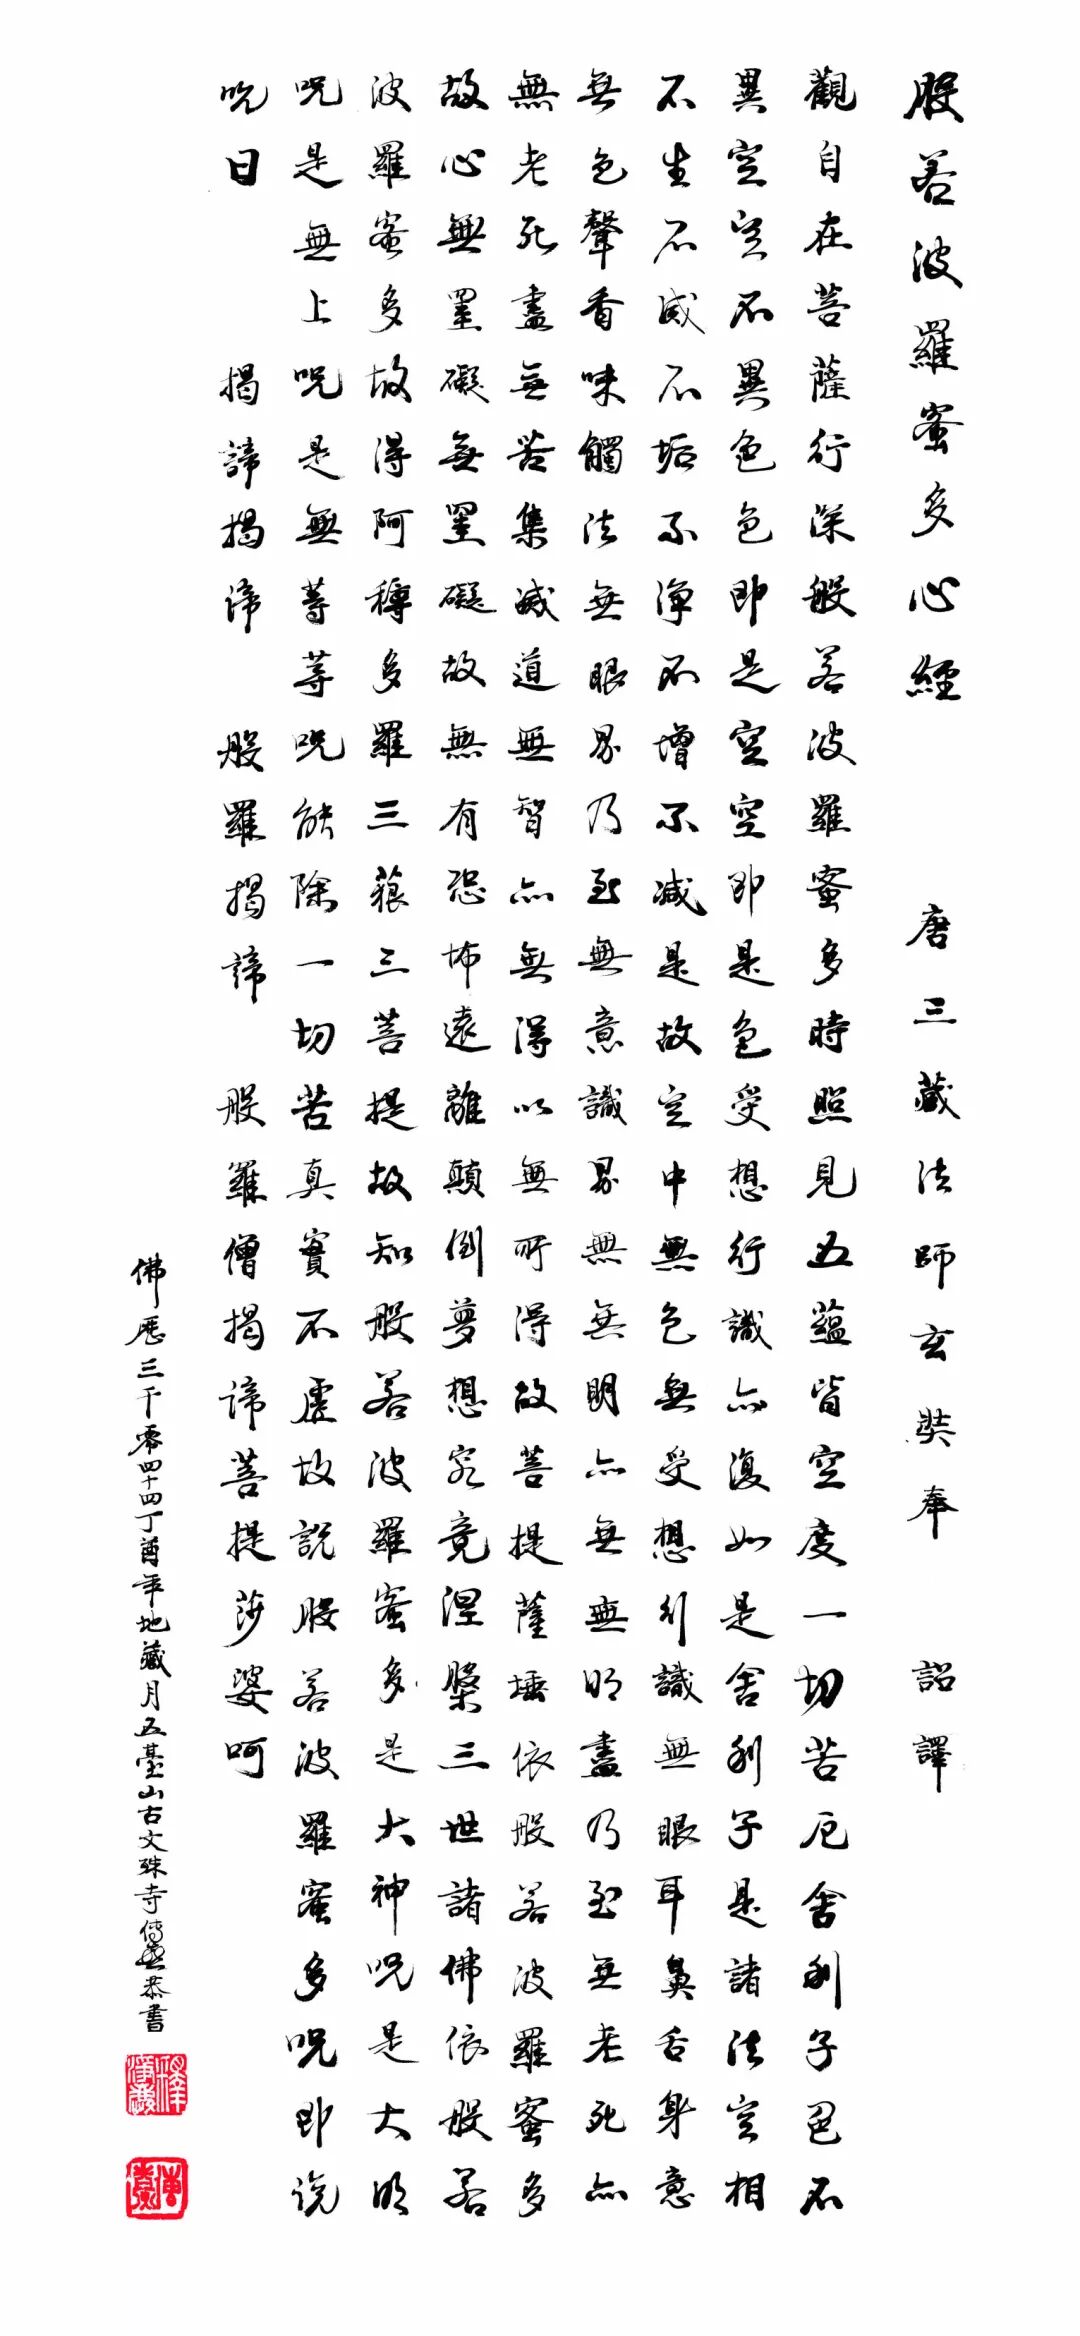 般若波羅蜜多心經 唐三藏法師玄奘奉 詔譯
觀自在菩薩行深般若波羅蜜多時照見五蘊皆空度一切苦厄舍利子色不
異空空不異色色即是空空即是色受想行識亦復如是舍利子是諸法空相
不生不滅不垢不淨不增不減是故空中無色無受想行識無眼耳鼻舌身意
無色聲香味觸法無眼界乃至無意識界無無明亦無無明盡乃至無老死亦
無老死盡無苦集滅道無智亦無得以無所得故菩提薩埵依般若波羅蜜多
故心無罣礙無罣礙故無有恐怖遠離顛倒夢想究竟涅槃三世諸佛依般若
波羅蜜多故得阿耨多羅三藐三菩提故知般若波羅蜜多是大神呪是大明
呪是無上呪是無等等呪能除一切苦真實不虛故說般若波羅蜜多呪即說
呪曰 揭諦揭諦 般羅揭諦 般羅僧揭諦菩提莎婆呵
佛歷三千零四十四丁酉年地藏月五臺山古文殊寺傳無恭書